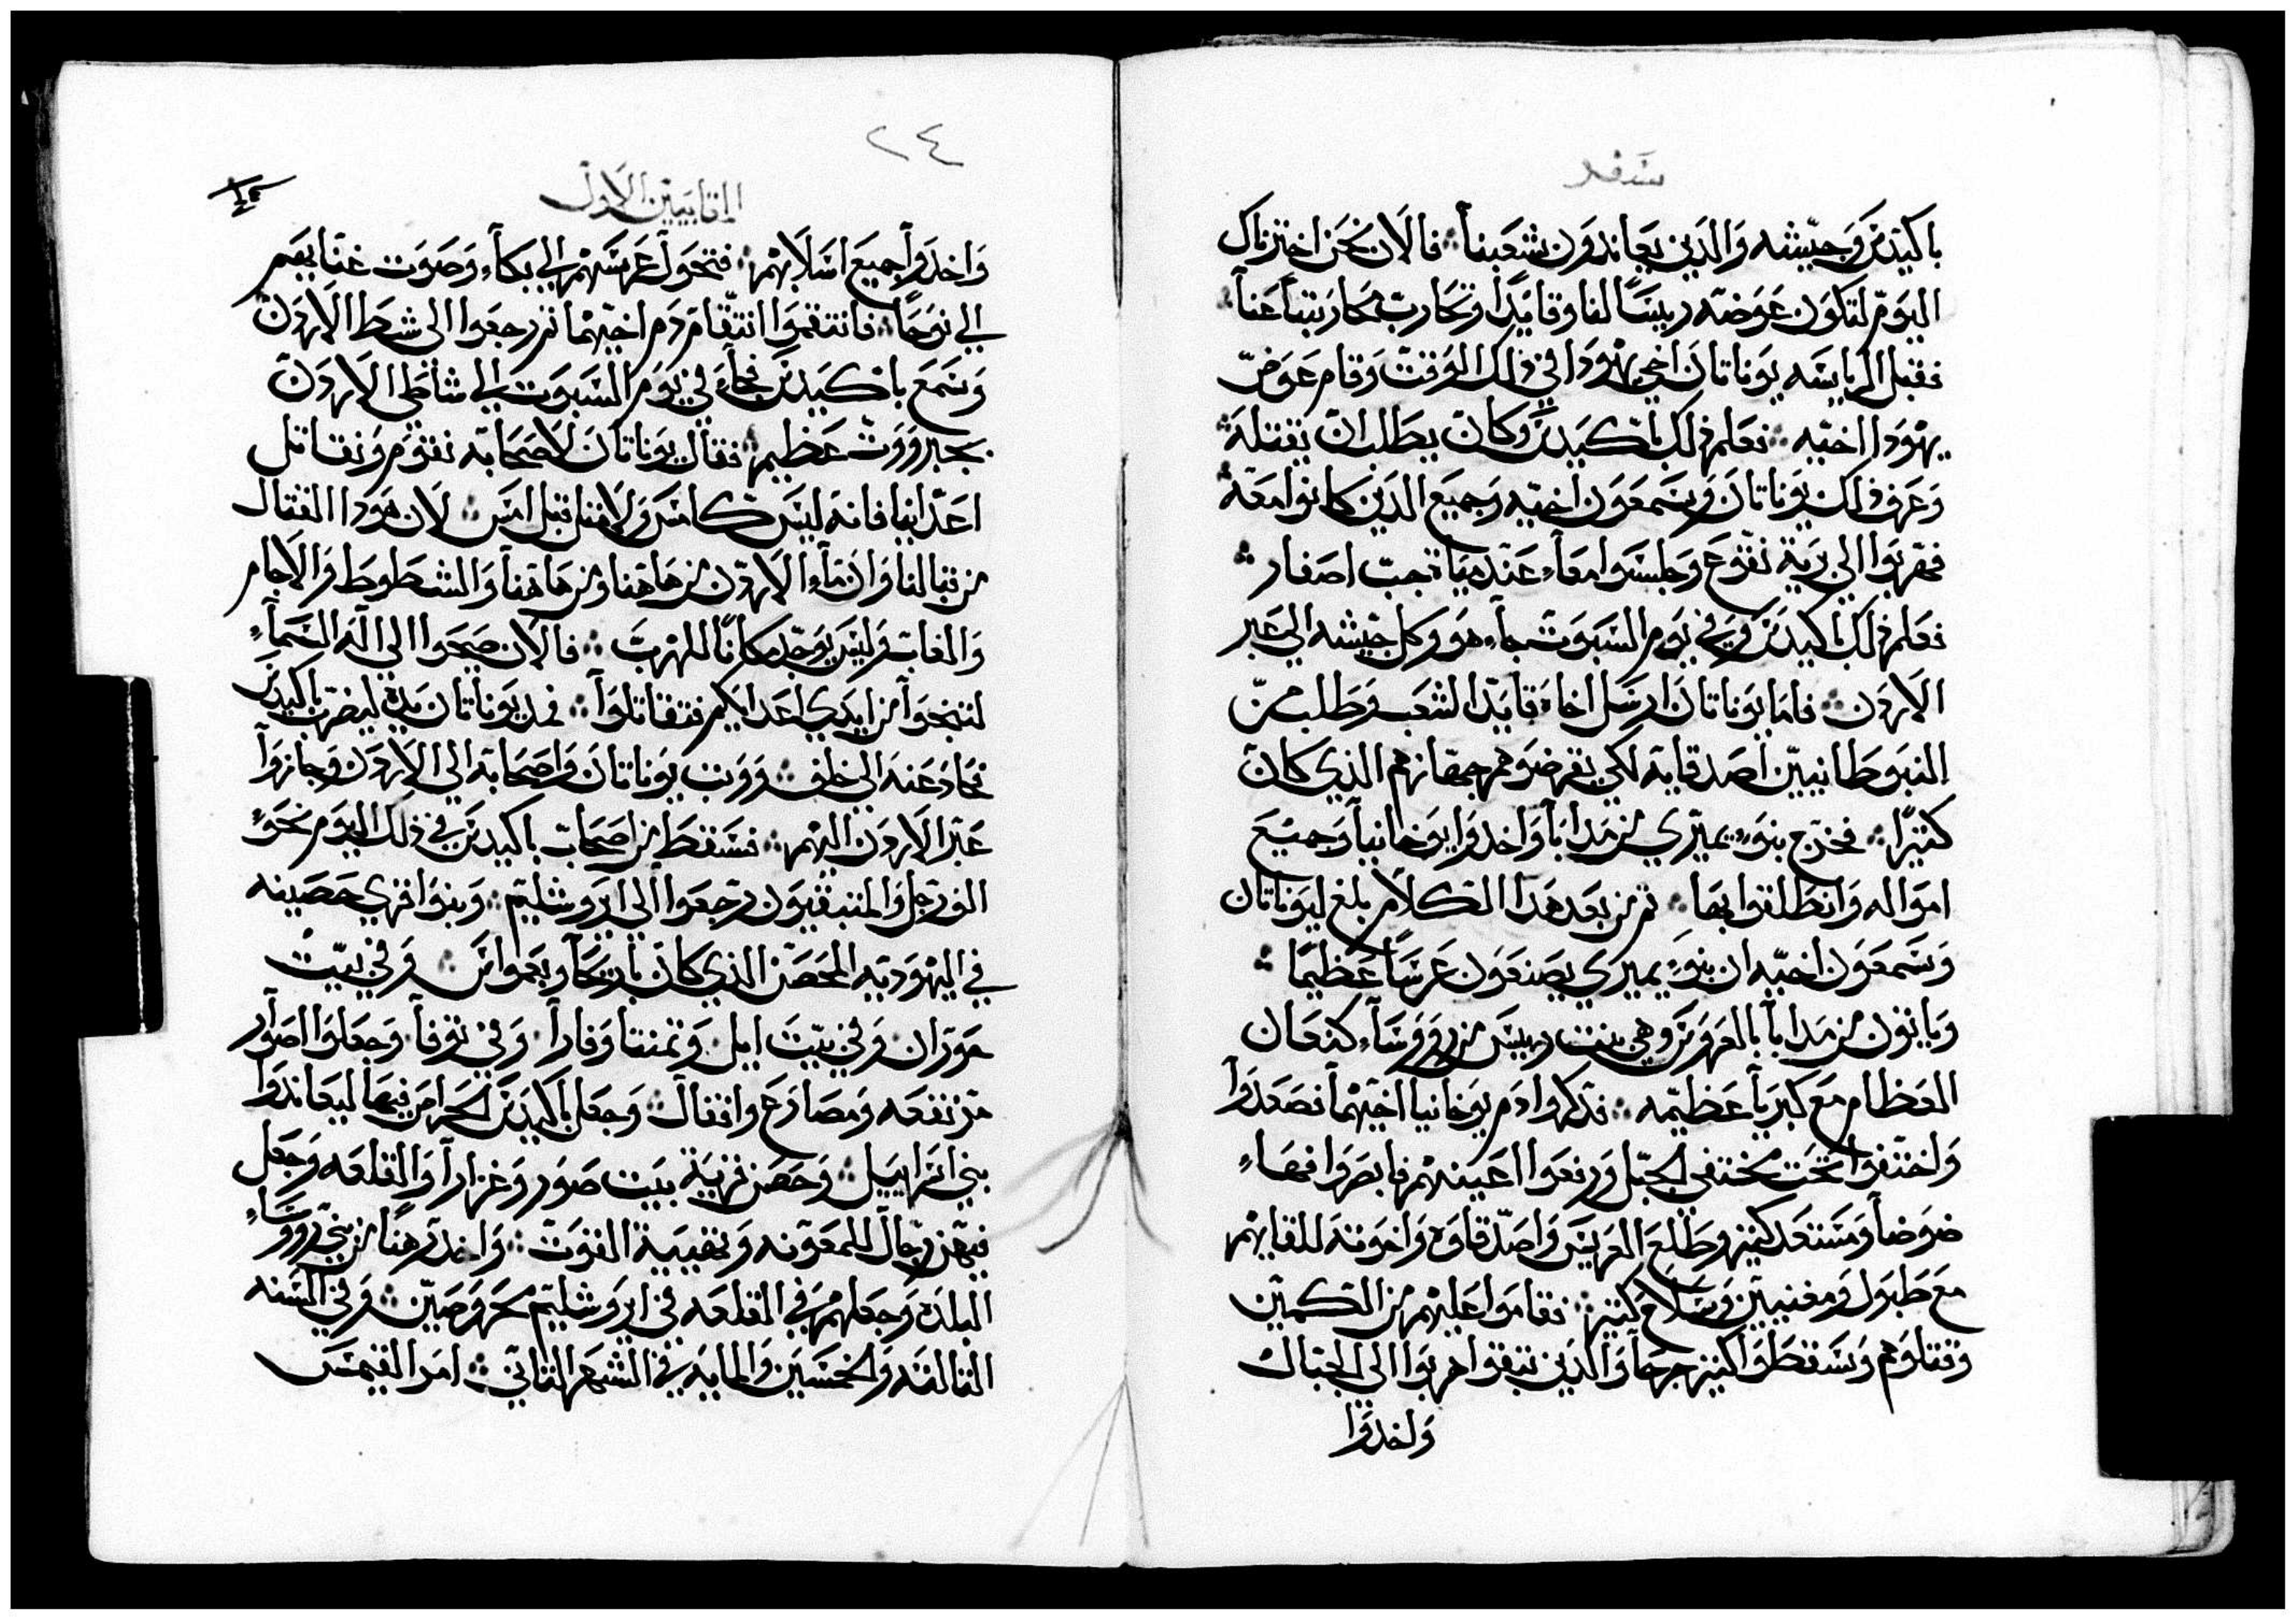 سفر
باكيدس وجيشه والدين يعاندون شعبنا فالان نحن اخترناك
اليوم لتكون عوضه رييسًا لنا وقايدًا وتحارب محاربتنا عنا
فقبل الرياسه يوناتان اخي يهودا في ذلك الوقت وقام عوض
يهودا اخيه فعلم ذلك باكيدس وكان يطلب ان يقتله
وعرف ذلك يوناتان وسمعون اخيه وجميع الدين كانوا معه
فهربوا الى برية تقوع وجلسوا معاء عند مياة جب اصفار
فعلم ذلك باكيدس وفي يوم السبوت جاء هو وكل جيشه الى عبر
الاردن فاما يوناتان ارسل اخاه قايد الشعب وطلب من
النبوطانيين اصدقايه لكي يقرضوهم جهازهم الذي كان
كثيرًا فخرج بنوء يمبري من مدابا واخدوا يوحانيا وجميع
امواله وانطلقوا بها ثم من بعد هدا الكلام بلغ ليوناتان
وسمعون اخيه ان بنوء يمبري يصنعون عرسًا عظيمًا
وياتون من مدابا بالعروس وهي بنت رييس من رووساء كنعان
العظام مع كبريا عظيمه فذكروا دم يوحانيا اخيهما فصعدوا
واختفوا تحت مختفي الجبل ورفعوا اعينهم فابصروا فهاء
ضوضا ومستعد كثير وطلع العريس واصدقاوه واخوته للقايهم
مع طبول ومغنيين وسلاح كثير فقاموا عليهم من التكمين
وقتلوهم وسقطوا كثير جرحا والدين تبقوا هربوا الى الجبال
واخدوا
٢٤
المقابيين الاول
واخدوا جميع اسلابهم فتحول عرسهم الي بكاء وصوت غنايهم
الي نوحا فانتقموا انتقام دم اخيهما ثم رجعوا الى شط الاردن
وسمع باكيدس فجاء في يوم السبوت الي شاطي الاردن
بجبرووت عظيم فقال يوناتان لاصحابه نقوم ونقاتل
اعداينا فانه ليس كامس ولا من قبل امس لان هودا القتال
من قبالنا وان ماء الاردن من هاهنا ومن هاهنا والشطوط والاجام
والغاب وليس يوجد مكانًا للهرب فالان صيحوا الي اله السماء
لتنجوا من ايدي اعدايكم فتقاتلوا فمد يوناتان يده ليضرب باكيدس
فحاد عنه الى خلف ووثب يوناتان واصحابه الى الاردن وجازوا
عبر الاردن اليهم فسقط من اصحاب باكيدس في ذلك اليوم نحوء
الف رجل والمتبقيون رجعوا الى ايروشليم وبنوا قري حصينه
في اليهوديه الحصن الذي كان باريحا وبعمواس وفي بيت
حوران وفي بيت ايل وتمنتا وفارا وفي توفا وجعلوا اصوار
مرتفعه ومصارع واقفال وجعل باكيدس الحرامر فيها ليعاندوا
بني اسراييل وحصن قرية بيت صور وغزارا والقلعه وجعل
فيهن رجال للمعونه وتهيية القوت واخد رهنًا من بني رووساء
البلده وجعلهم في القلعه في ايروشليم محروصين وفي السنه
الثالثه والخمسين والمايه في الشهر الثاني امر القيمس